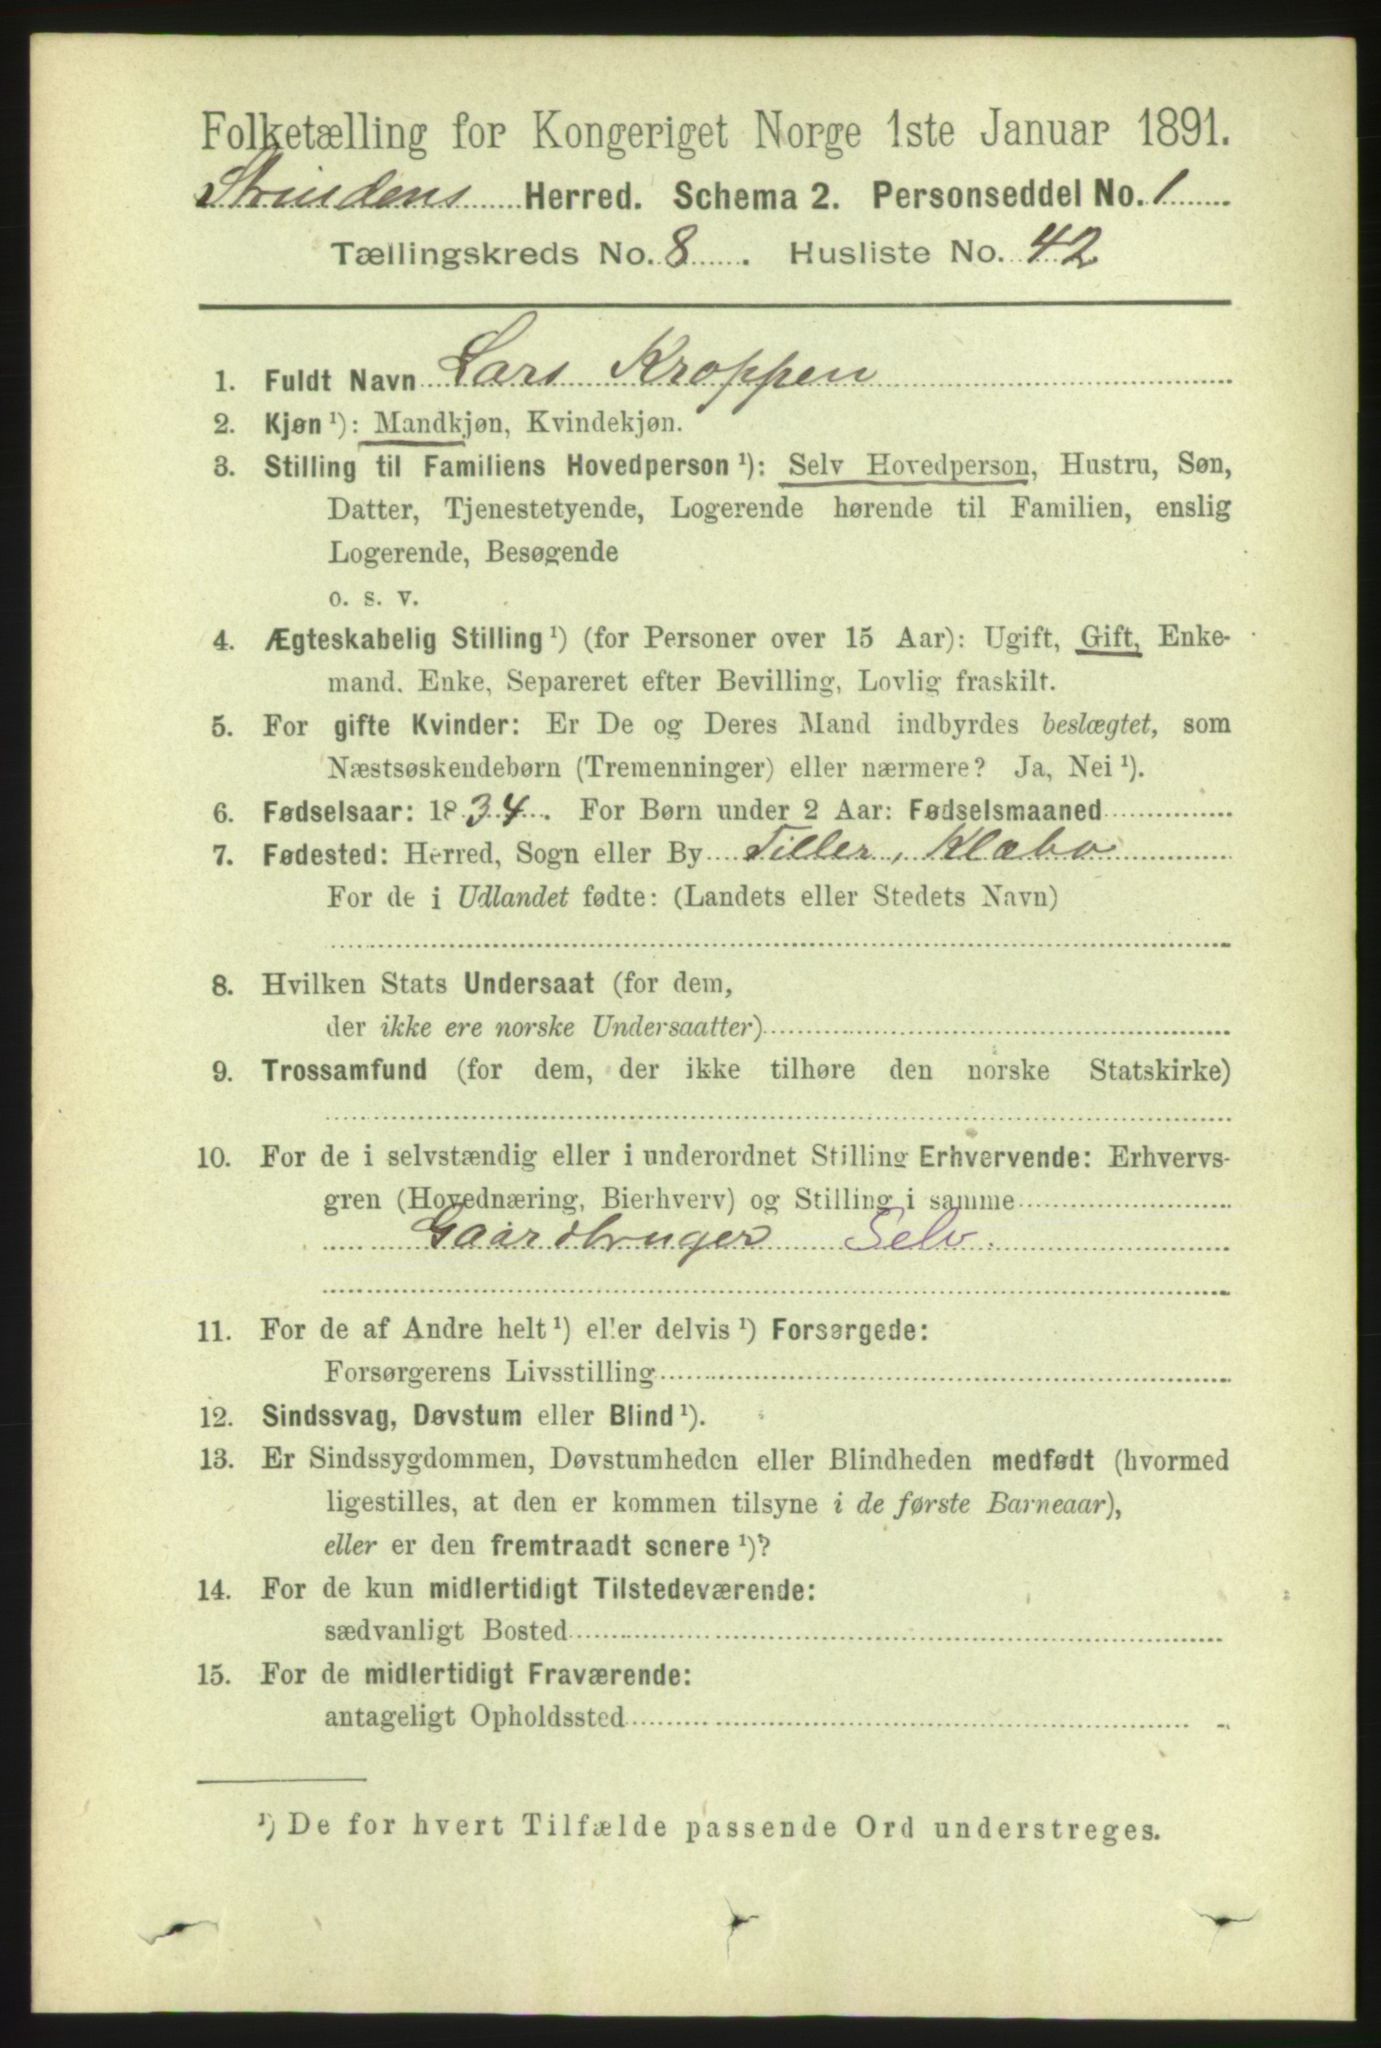 Folketælling for Kongeriget Norge 1ste Januar 1891.
Strindens Herred. Schema 2. Personseddel No. 1
Tællingskreds No. 8. Husliste No. 42
1. Fuldt Navn Lars Kroppen
2. Kjøn ¹): Mandkjøn, Kvindekjøn.
3. Stilling til Familiens Hovedperson ¹): Selv Hovedperson, Hustru, Søn,
Datter, Tjenestetyende, Logerende hørende til Familien, enslig
Logerende, Besøgende
o. s. v.
4. Ægteskabelig Stilling ¹) (for Personer over 15 Aar): Ugift, Gift, Enke-
mand. Enke, Separeret efter Bevilling, Lovlig fraskilt.
5. For gifte Kvinder: Er De og Deres Mand indbyrdes beslægtet, som
Næstsøskendebørn (Tremenninger) eller nærmere? Ja, Nei ¹).
6. Fødselsaar: 1834. For Børn under 2 Aar: Fødselsmaaned
7. Fødested: Herred, Sogn eller By Tiller, Klæbo
For de i Udlandet fødte: (Landets eller Stedets Navn)
8. Hvilken Stats Undersaat (for dem,
der ikke ere norske Undersaatter)
9. Trossamfund (for dem, der ikke tilhøre den norske Statskirke)
10. For de i selvstændig eller i underordnet Stilling Erhvervende: Erhvervs-
gren (Hovednæring, Bierhverv) og Stilling i samme
Gaardbruger Selv.
11. For de af Andre helt ¹) eller delvis ¹) Forsørgede:
Forsørgerens Livsstilling
12. Sindssvag, Døvstum eller Blind ¹).
13. Er Sindssygdommen, Døvstumheden eller Blindheden medfødt (hvormed
ligestilles, at den er kommen tilsyne i de første Barneaar),
eller er den fremtraadt senere ¹)?
14. For de kun midlertidigt Tilstedeværende:
sædvanligt Bosted
15. For de midlertidigt Fraværende:
antageligt Opholdssted
¹) De for hvert Tilfælde passende Ord understreges.